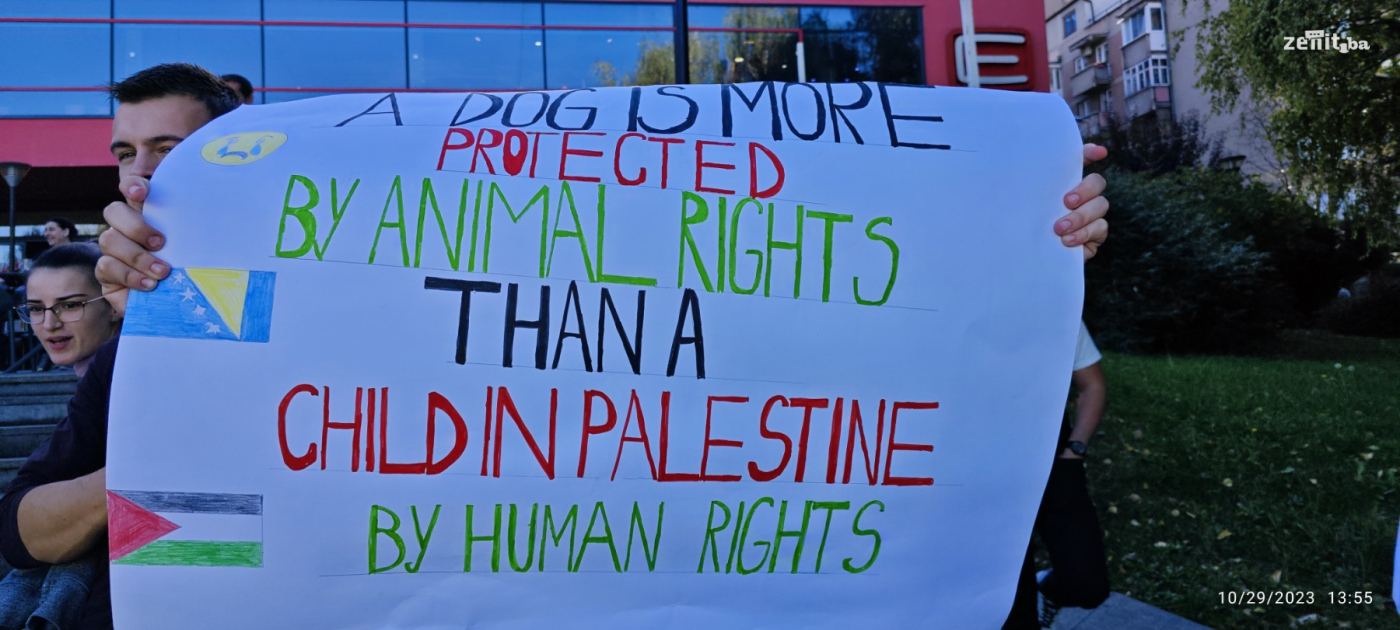 zenit.ba
E
A DOG IS MORE
PROTECTED
BY ANIMAL RIGHTS
THAN A
CHILD IN PALESTINE
BY HUMAN RIGHTS
10/29/2023 13:55